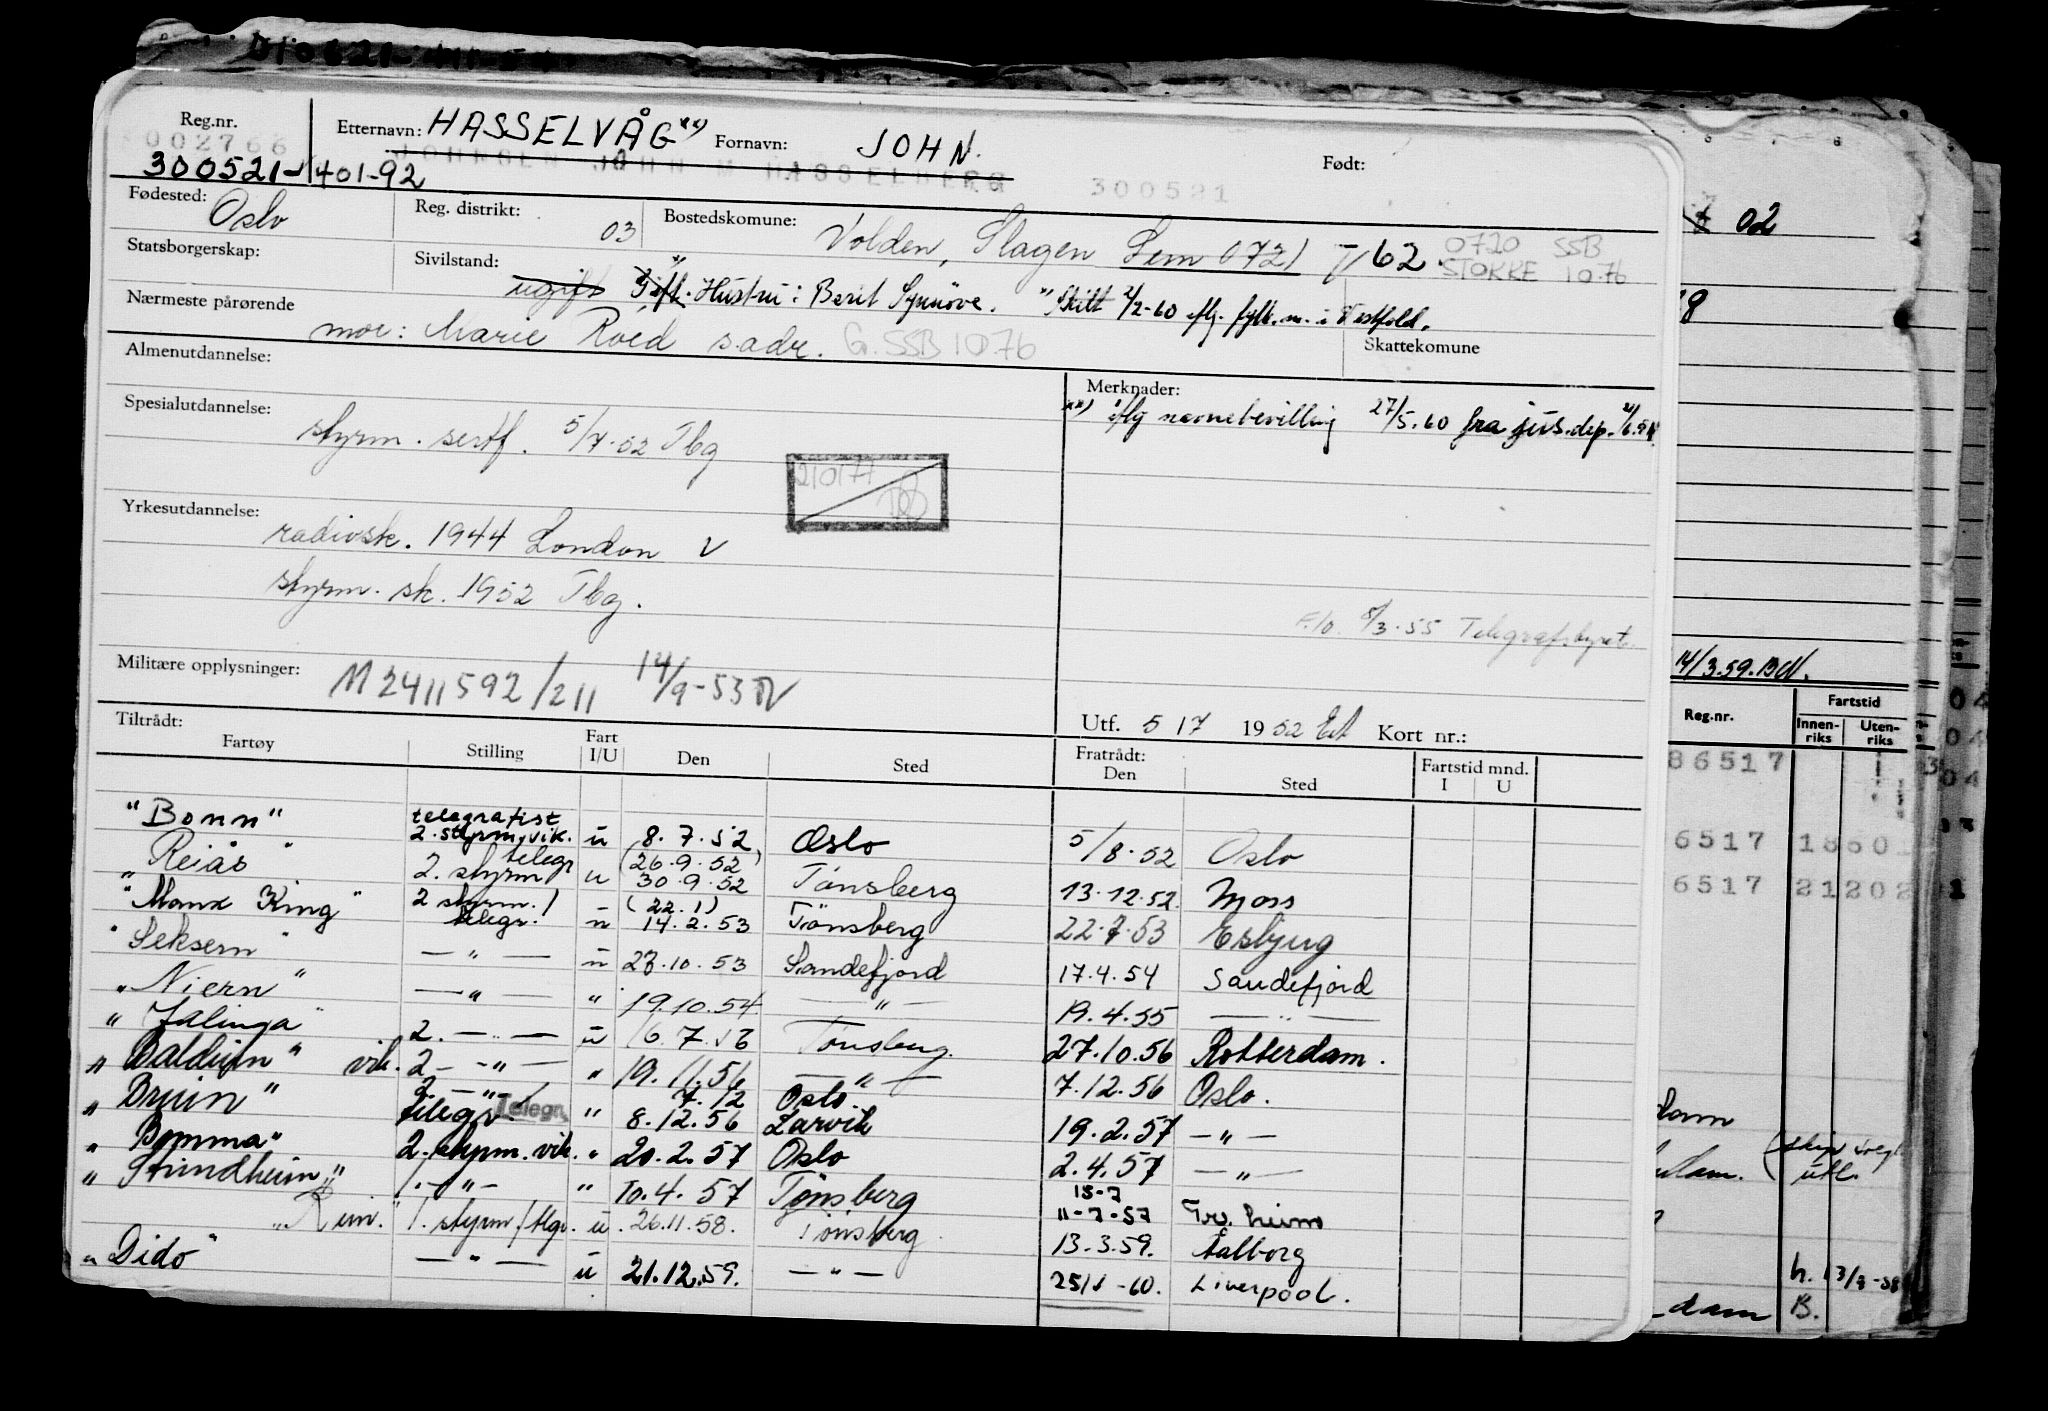 Reg.nr. Etternavn: HASSELVÅG xx) Fornavn: JOHN. Født:
002766 JOHNSEN JOHN M HASSELBERG 300521
300521-401-92
Fødested: Oslo Reg. distrikt: 03 Bostedskomune: Volden, Slagen Sem 0721 T/62. 0720 SSB
STOKKE 10.76
Statsborgerskap: Sivilstand: ugift Gift. Hustru: Berit Synnøve. Skilt 2/2-60 iflg. fylk.m. i Vestfold.
Nærmeste pårørende mor: Marie Roed s.adr. G. SSB 10.76 Skattekomune
Almenutdannelse: Merknader:
xx) iflg navnebevilling 27/5.60 fra jus.dep.
Spesialutdannelse: styrm. sertf. 5/7.52 Tbg
210177
Yrkesutdannelse: radiosk. 1944 London V
styrm. sk. 1952 Tbg.
8/3.55 Telegrafstyret
Militære opplysninger: M2411592/211 14/9-53
Tiltrådt: Utf. 5/7 1952 Kort nr.:
Fartøy Stilling Fart I/U Den Sted Fratrådt: Den Sted Fartstid mnd. I U
"Bonn" telegrafist 2. styrm. vik. u 8.7.52 Oslo 5/8.52 Oslo
"Reiås" 2. styrm telegr u (26.9.52) 30.9.52 Tønsberg 13.12.52. Moss
"Manx King" 2 styrm./ telegr. u (22.1) 14.2.53 Tønsberg 22.7.53 Esbjerg
"Seksern" — " — u 23.10.53 Sandefjord 17.4.54 Sandefjord
"Niern" — " — " 19.10.54 — " — 19.4.55 — " —
"Jalinga" 2. — " — u 6.7.56 Tønsberg. 27.10.56 Rotterdam.
"Balduin" vik. 2 — " — " 19.11.56 — " — 7.12.56 Oslo.
"Bruin" 2 — " — / telegr. Telegr. " 7.12 8.12.56 Oslo Larvik 19.2.57 — " —
"Bomma" 2. styrm. vik. " 20.2.57 Oslo 2.4.57 — " —
"Strindheim" 1. — " — " 10.4.57 Tønsberg 15-7 11-7-57 Tr.heim
"Rim." 1. styrm/tlgr. u 26.11.58. Tønsberg 13.3.59. Aalborg
"Dido" — " — u 21.12.59. — " — 25/1-60. Liverpool.
02
14/3.59.
Reg.nr. Fartstid
Innenriks Utenriks
86517
6517 18601
6517 21202
dam
(skip solgt utl.
h. 13/3-58
dam B.